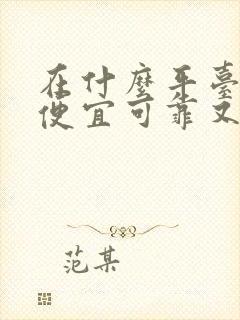 在什麼平臺
便宜可靠又
范某